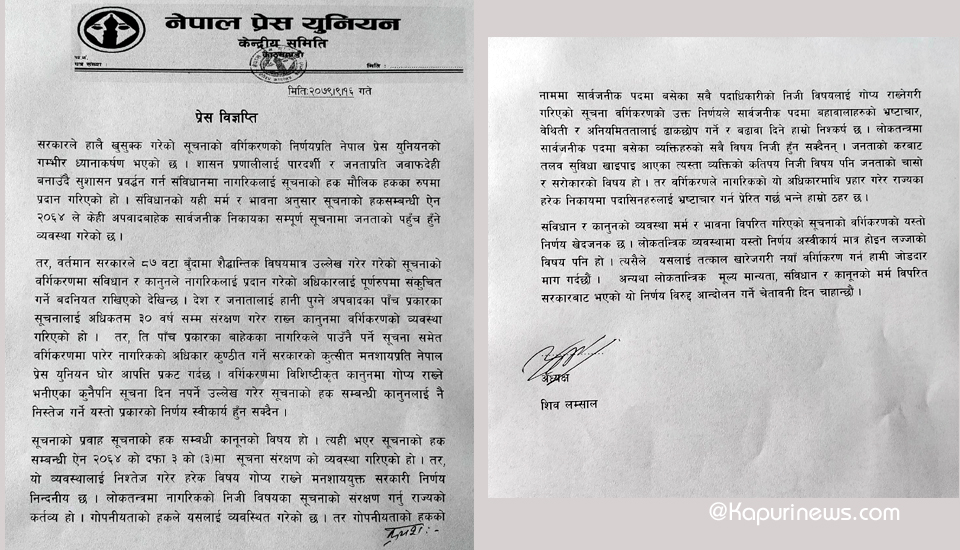 नेपाल प्रेस युनियन
केन्द्रीय समिति
काठमाण्डौ
पत्र संख्या
मिति :
मिति:२०७९।९।१६ गते
प्रेस विज्ञप्ति
सरकारले हालै खुसुक्क गरेको सूचनाको वर्गिकरणको निर्णयप्रति नेपाल प्रेस युनियनको
गम्भीर ध्यानाकर्षण भएको छ । शासन प्रणालीलाई पारदर्शी र जनताप्रति जवाफदेही
बनाउँदै सुशासन प्रवर्द्धन गर्न संविधानमा नागरिकलाई सूचनाको हक मौलिक हकका रुपमा
प्रदान गरिएको हो । संविधानको यही मर्म र भावना अनुसार सूचनाको हकसम्बन्धी ऐन
२०६४ ले केही अपवादबाहेक सार्वजनीक निकायका सम्पूर्ण सूचनामा जनताको पहुँच हुँने
व्यवस्था गरेको छ ।
तर, वर्तमान सरकारले ८७ वटा बुंदामा शैद्धान्तिक विषयमात्र उल्लेख गरेर गरेको सूचनाको
वर्गिकरणमा संविधान र कानुनले नागरिकलाई प्रदान गरेको अधिकारलाई पूर्णरुपमा संकुचित
गर्ने बदनियत राखिएको देखिन्छ । देश र जनतालाई हानी पुग्ने अपवादका पाँच प्रकारका
सूचनालाई अधिकतम ३० वर्ष सम्म संरक्षण गरेर राख्न कानुनमा वर्गिकरणको व्यवस्था
गरिएको हो । तर, ति पाँच प्रकारका बाहेकका नागरिकले पाउँनै पर्ने सूचना समेत
वर्गिकरणमा पारेर नागरिकको अधिकार कुण्ठीत गर्ने सरकारको कुत्सीत मनशायप्रति नेपाल
प्रेस युनियन घोर आपत्ति प्रकट गर्दछ । वर्गिकरणमा विशिष्टीकृत कानुनमा गोप्य राख्ने
भनीएका कुनैपनि सूचना दिन नपर्ने उल्लेख गरेर सूचनाको हक सम्बंधी कानुनलाई नै
निस्तेज गर्ने यस्तो प्रकारको निर्णय स्वीकार्य हुँन सक्दैन ।
सूचनाको प्रवाह सूचनाको हक सम्बधी कानूनको विषय हो । त्यही भएर सूचनाको हक
सम्बन्धी ऐन २०६४ को दफा ३ को (३)मा सूचना संरक्षण को व्यवस्था गरिएको हो । तर,
यो व्यवस्थालाई निश्तेज गरेर हरेक विषय गोप्य राख्ने मनशाययुक्त सरकारी निर्णय
निन्दनीय छ । लोकतन्त्रमा नागरिकको निजी विषयका सूचनाको संरक्षण गर्नु राज्यको
कर्तव्य हो । गोपनीयताको हकले यसलाई व्यवस्थित गरेको छ । तर गोपनीयताको हकको
क्रमशः:-
नाममा सार्वजनीक पदमा बसेका सबै पदाधिकारीको निजी विषयलाई गोप्य राख्नेगरी
गरिएको सूचना वर्गिकरणको उक्त निर्णयले सार्वजनीक पदमा बहावालाहरुको भ्रष्टाचार,
वेथिती र अनियमिततालाई ढाकछोप गर्ने र बढावा दिने हाम्रो निश्कर्ष छ । लोकतन्त्रमा
सार्वजनीक पदमा बसेका व्यक्तिहरुको सबै विषय निजी हुँन सक्दैनन् । जनताको करबाट
तलव सुविधा खाइपाइ आएका त्यस्ता व्यक्तिको कतिपय निजी विषय पनि जनताको चासो
र सरोकारको विषय हो । तर वर्गिकरणले नागरिकको यो अधिकारमाथि प्रहार गरेर राज्यका
हरेक निकायमा पदासिनहरुलाई भ्रष्टाचार गर्न प्रेरित गर्छ भन्ने हाम्रो ठहर छ ।
संविधान र कानुनको व्यवस्था मर्म र भावना विपरित गरिएको सूचनाको वर्गिकरणको यस्तो
निर्णय खेदजनक छ । लोकतन्त्रिक व्यवस्थामा यस्तो निर्णय अस्वीकार्य मात्र होइन लज्जाको
विषय पनि हो । त्यसैले यसलाई तत्काल खारेजगरी नयाँ वर्गिकरण गर्न हामी जोडदार
माग गर्दछौं । अन्यथा लोकतान्त्रिक मूल्य मान्यता, संविधान र कानुनको मर्म विपरित
सरकारबाट भएको यो निर्णय विरुद्द आन्दोलन गर्ने चेतावनी दिन चाहान्छौ ।
अध्यक्ष
शिव लम्साल
@Kapurinews.com